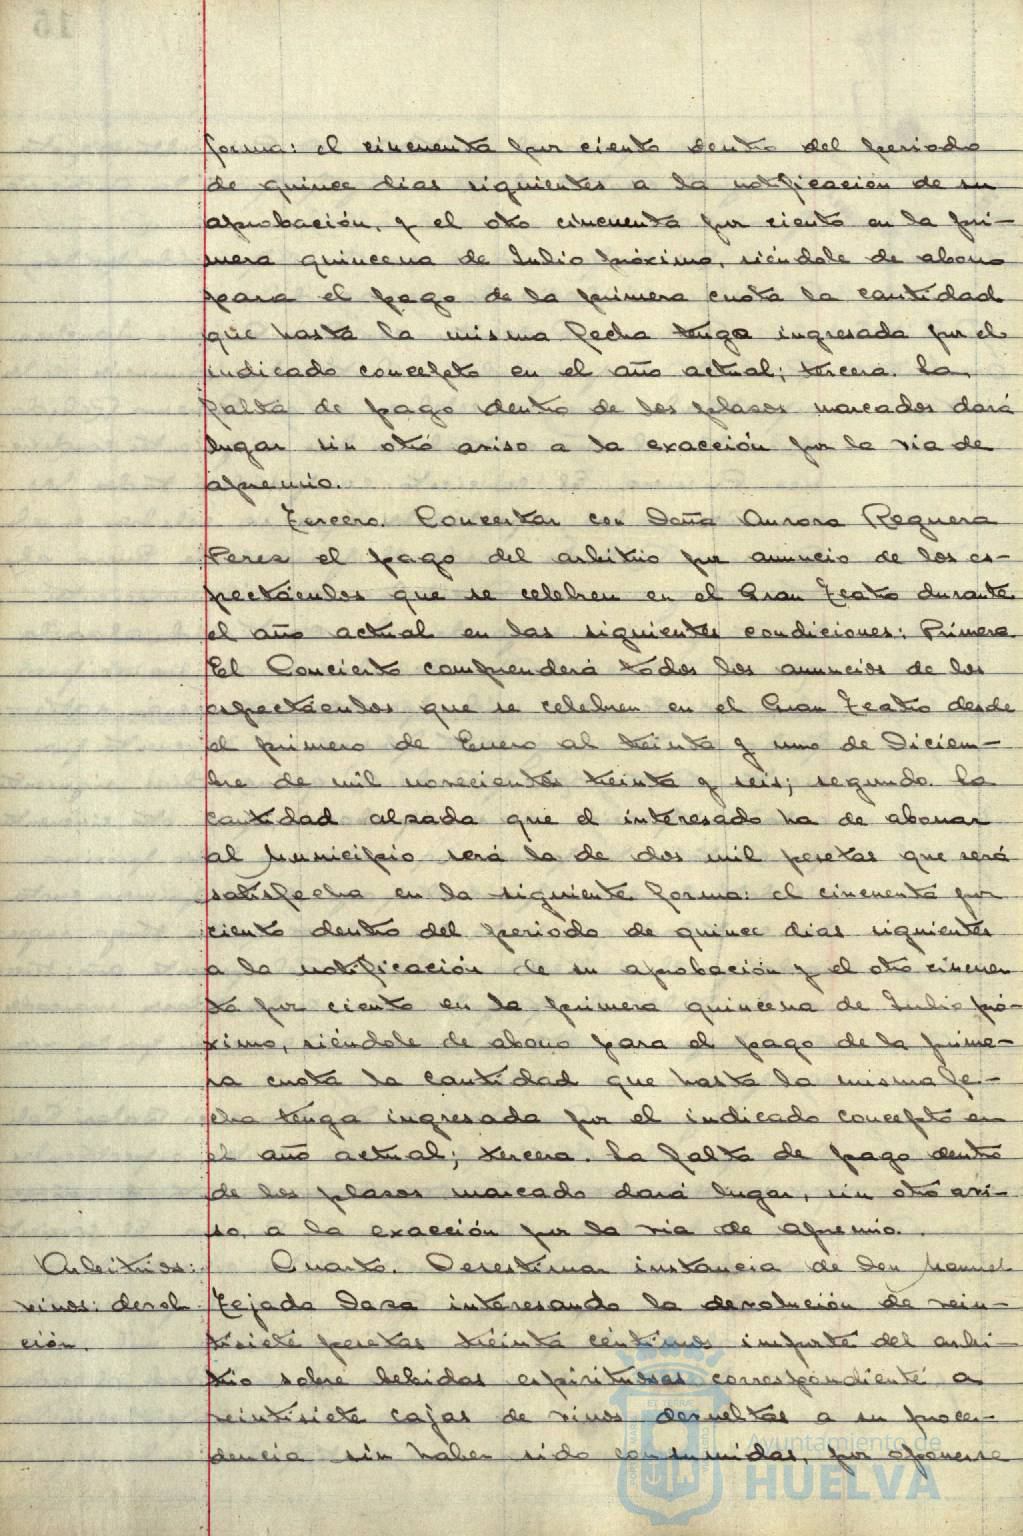 forma: el cincuenta por ciento dentro del periodo
de quince dias siguientes a la notificación de su
aprobación, y el otro cincuenta por ciento en la pri-
mera quincena de Julio próximo, siéndole de abono
para el pago de la primera cuota la cantidad
que hasta la misma fecha tenga ingresada por el
indicado concepto en el año actual; tercera. La
falta de pago dentro de los plasos marcados dará
lugar sin otro aviso a la exacción por la via de
apremio.
Tercero. Concertar con Doña Aurora Reguera
Peres el pago del arbitrio por anuncio de los es-
pectáculos que se celebren en el Gran Teatro durante
el año actual en las siguientes condiciones: Primera
El Concierto comprenderá todos los anuncios de los
espectáculos que se celebren en el Gran Teatro desde
el primero de Enero al treinta y uno de Diciem-
bre de mil novecientos treinta y seis; segundo. la
cantidad alzada que el interesado ha de abonar
al Municipio será la de dos mil pesetas que será
satisfecha en la siguiente forma: el cincuenta por
ciento dentro del periodo de quince dias siguientes
a la notificación de su aprobación y el otro cincuen
ta por ciento en la primera quincena de Julio pró-
ximo, siéndole de abono para el pago de la prime-
ra cuota la cantidad que hasta la misma fe-
cha tenga ingresada por el indicado concepto en
el año actual; tercera. La falta de pago dentro
de los plasos marcado dará lugar, sin otro avi-
so, a la exacción por la via de apremio.
Arbitrios:
vinos: devolu
ción.
Cuarto. Desestimar instancia de Don Manuel
Tejado Daza interesando la devolución de vein-
tisiete pesetas treinta céntimos importe del arbi-
trio sobre bebidas espirituosas correspondiente a
veintisiete cajas de vinos devueltas a su proce-
dencia sin haber sido consumidas, por oponerse
Ayuntamiento de
HUELVA